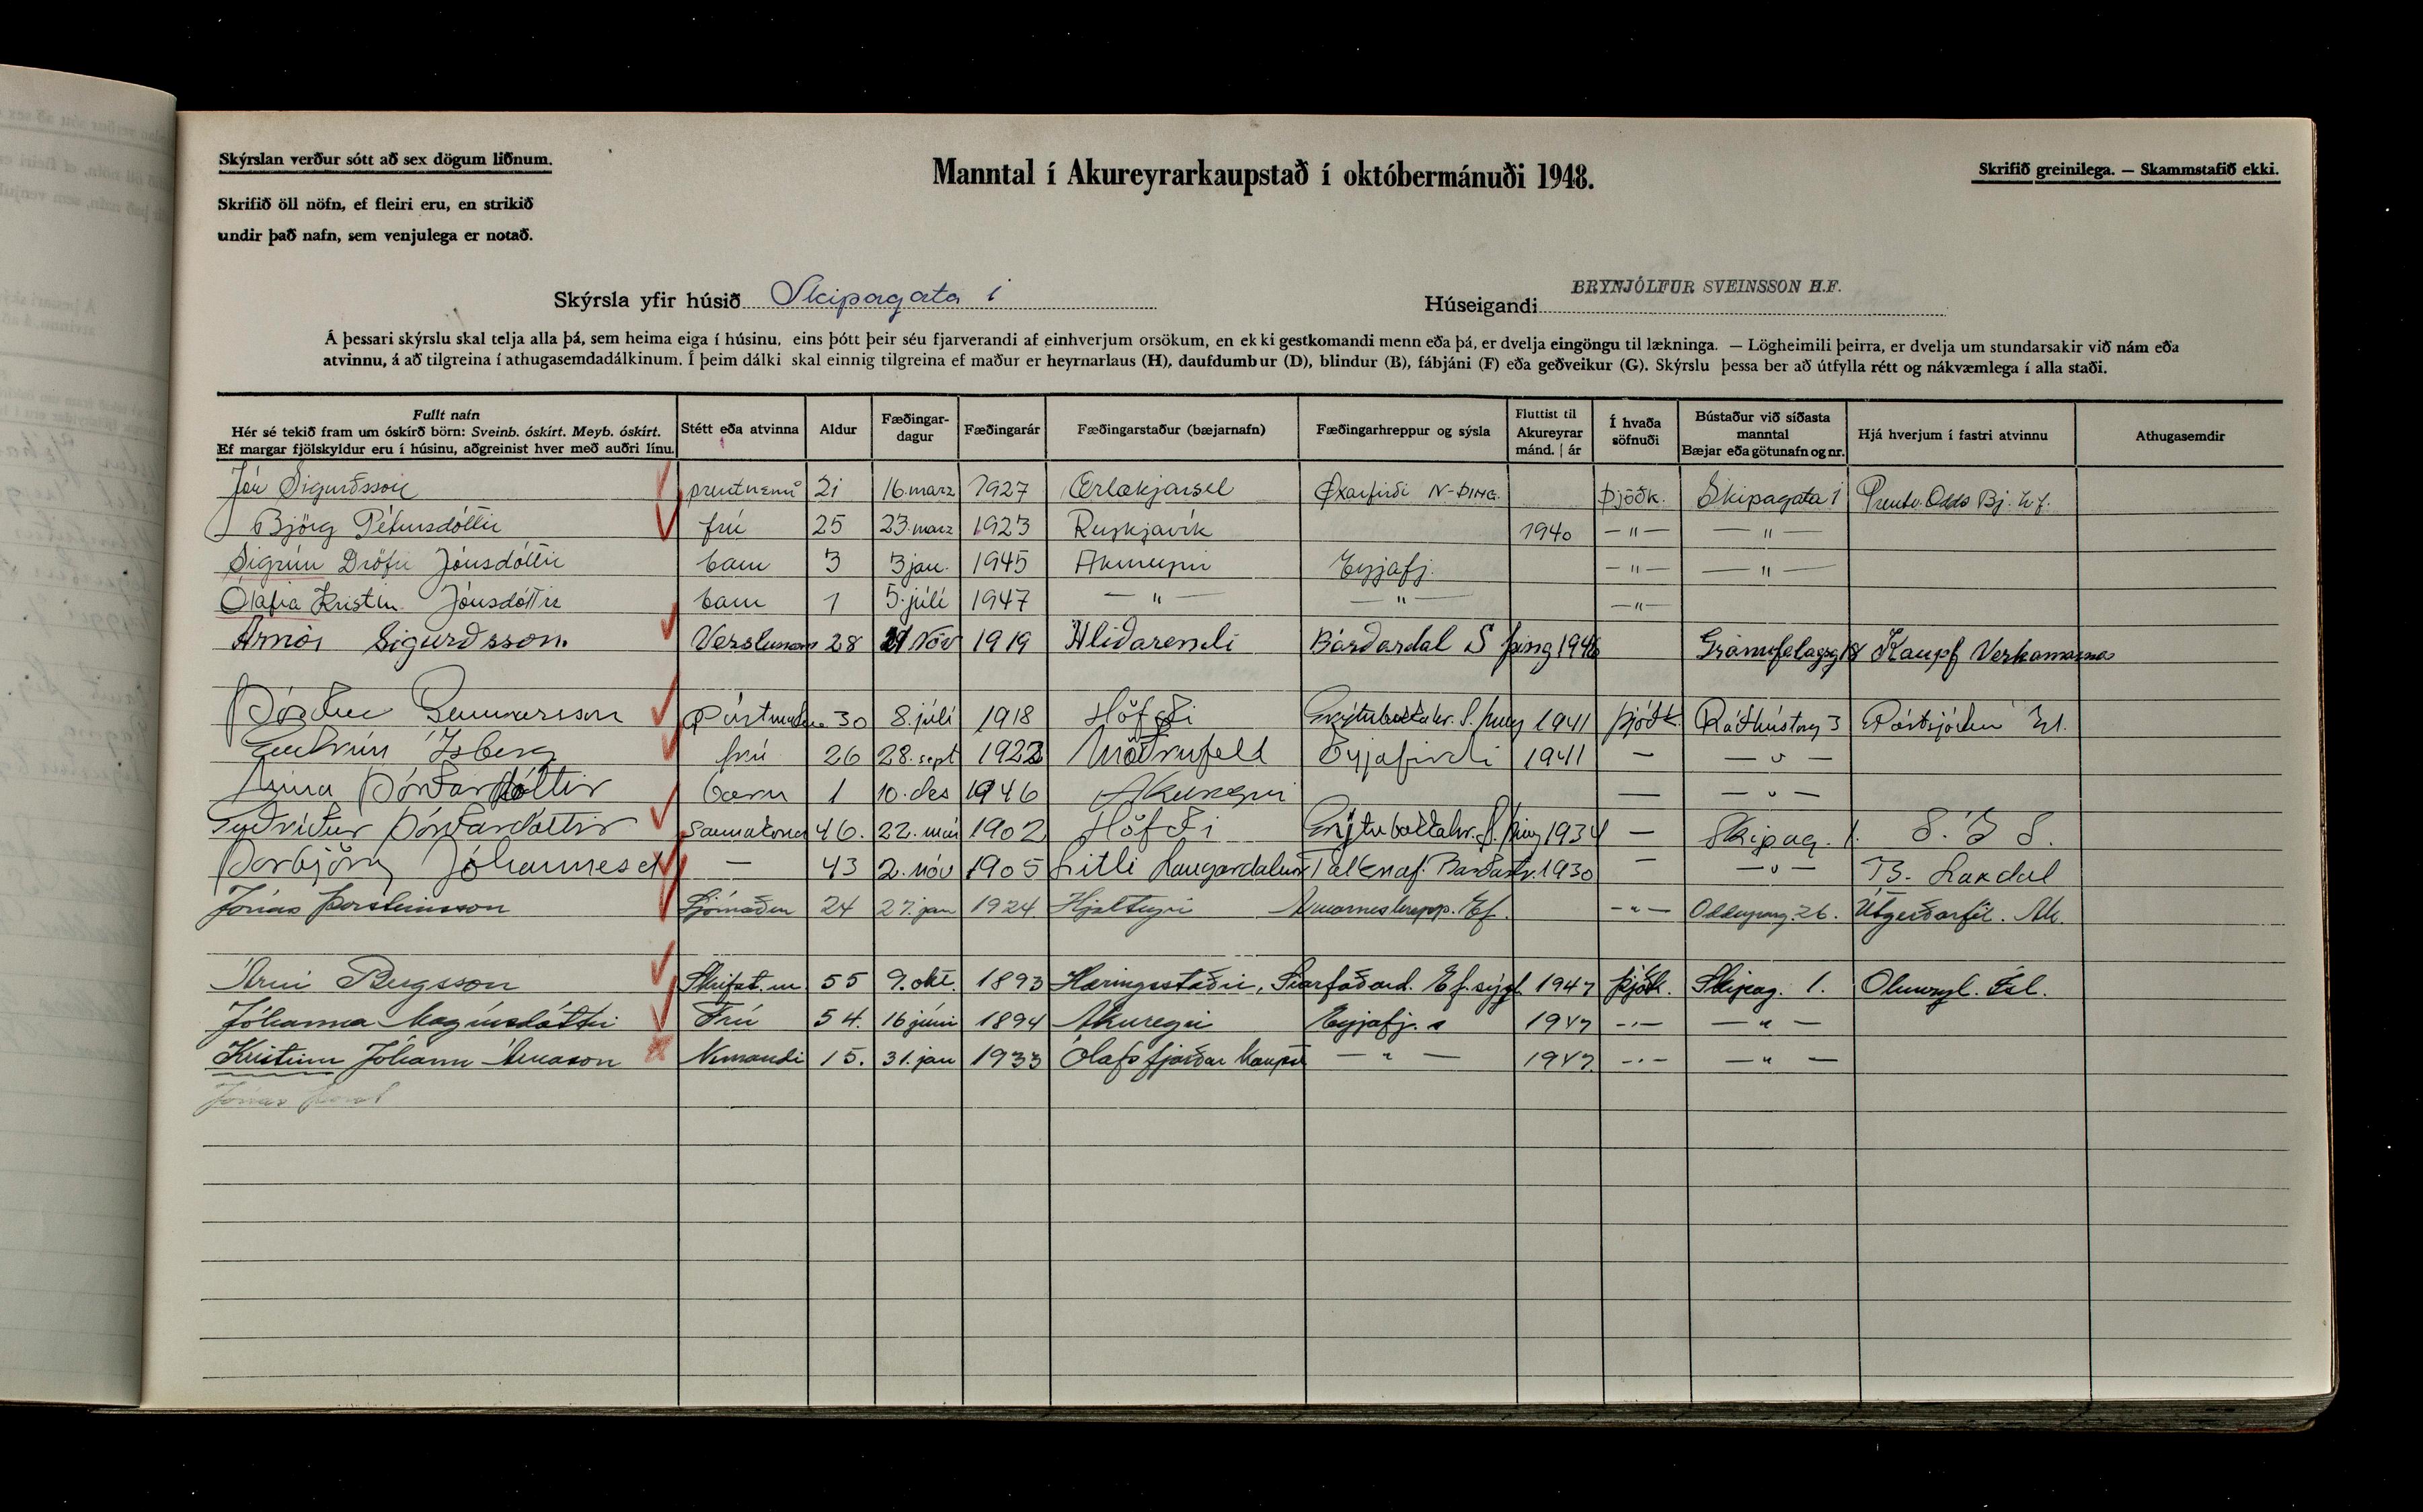 Skýrslan verður sótt að sex dögum liðnum.
Skrifið öll nöfn, ef fleiri eru, en strikið
undir það nafn, sem venjulega er notað.
Manntal í Akureyrarkaupstað í októbermánuði 1948.
Skrifið greinilega. — Skammstafið ekki.
Skýrsla yfir húsið Skipagata 1
Húseigandi BRYNJÓLFUR SVEINSSON H.F.
Á þessari skýrslu skal telja alla þá, sem heima eiga í húsinu, eins þótt þeir séu fjarverandi af einhverjum orsökum, en ekki gestkomandi menn eða þá, er dvelja eingöngu til lækninga. — Lögheimili þeirra, er dvelja um stundarsakir við nám eða
atvinnu, á að tilgreina í athugasemdadálkinum. Í þeim dálki skal einnig tilgreina ef maður er heyrnarlaus (H), daufdumbur (D), blindur (B), fábjáni (F) eða geðveikur (G). Skýrslu þessa ber að útfylla rétt og nákvæmlega í alla staði.
Fullt nafn Hér sé tekið fram um óskírð börn: Sveinb. óskírt. Meyb. óskírt. Ef margar fjölskyldur eru í húsinu, aðgreinist hver með auðri línu. Stétt eða atvinna Aldur Fæðingar-dagur Fæðingarár Fæðingarstaður (bæjarnafn) Fæðingarhreppur og sýsla Fluttist til Akureyrar mánd. | ár Í hvaða söfnuði Bústaður við síðasta manntal Bæjar eða götunafn og nr. Hjá hverjum í fastri atvinnu Athugasemdir
Jón Sigurðsson prentnemi 21 16. marz 1927 Ærlækjarsel Öxarfirði N-ÞING. Þjóðk. Skipagata 1 Prentv. Odds Bj. h.f.
Björg Pétursdóttir frú 25 23. marz 1923 Reykjavík 1940 — " — — " —
Sigrún Dröfn Jónsdóttir barn 3 3 jan. 1945 Akureyri Eyjafj. — " — — " —
Ólafía Kristín Jónsdóttir barn 1 5. júlí 1947 — " — — " — — " —
Arnór Sigurðsson. Verslunarm 28 Nóv 1919 Hlíðarendi Bárðardal S þing 1946 Gránufélagsg 18 Kaupf Verkamanna
Þórður Gunnarsson Póstmaður 30 8. júlí 1918 Höfði Grýtubakkahr. S. þing 1941 þjóðk. Ráðhústorg 3 Póstsjóður
Guðrún Ísberg frú 26 28. sept 1922 Möðrufell Eyjafirði 1941 — — " —
Anna Þórðardóttir barn 1 10. des 1946 Akureyri — — " —
Guðríður Þórðardóttir saumakona 46. 22. maí 1902 Höfði Grýtubakkahr. S. þing 1934 — Skipag. 1. S. Í S.
Þorbjörg Jóhannesd — 43 2. nóv 1905 Litli Laugardalur Tálknaf. Barðastr. 1930 — — " — B. Laxdal
Jónas Þorsteinsson Sjómaður 24 27. jan 1924 Hjalteyri Arnarneshrepp. Ef. — " — Oddeyrarg. 26. Útgerðarfél. Ak.
Árni Bergsson Skrifst.m 55 9. okt. 1893 Hæringsstaðir, Svarfaðard. Ef. sýsl 1947 þjóðk. Skipag. 1. Olíuverzl. Ísl.
Jóhanna Magnúsdóttir Frú 54. 16 júní 1894 Akureyri Eyjafj. s 1947 — " — — " —
Kristinn Jóhann Árnason Nemandi 15. 31. jan 1933 Ólafsfjarðar kaupst — " — 1947 — " — — " —
Jónas Þorst